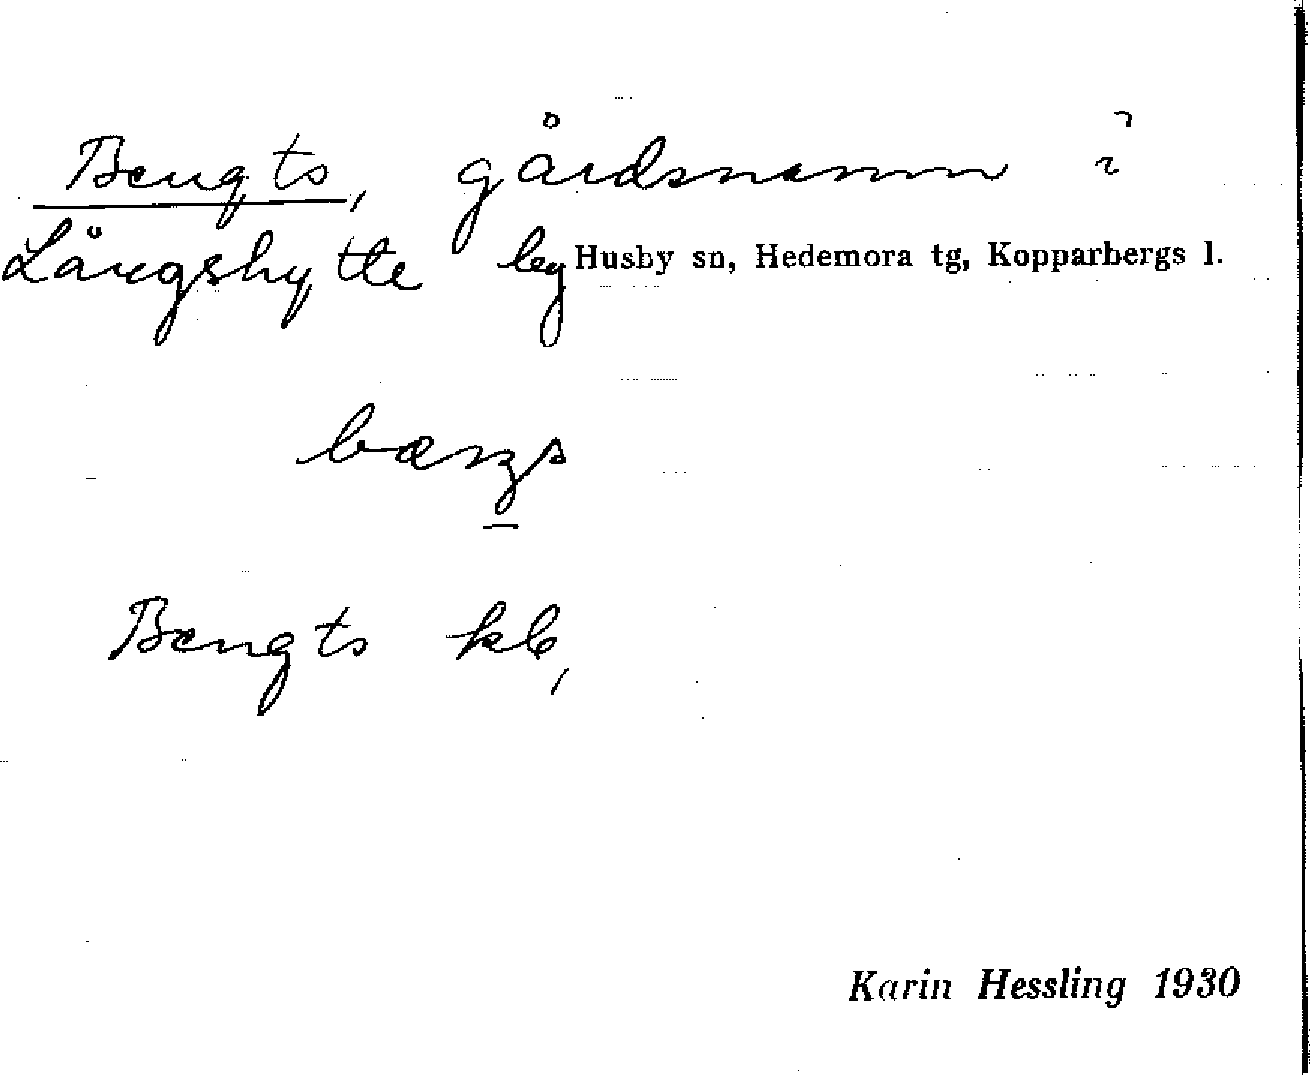 Bengts, gårdsnamn i
Långshytte by Husby sn, Hedemora tg, Kopparbergs l.
Bengts kb,
Karin Hessling 1930